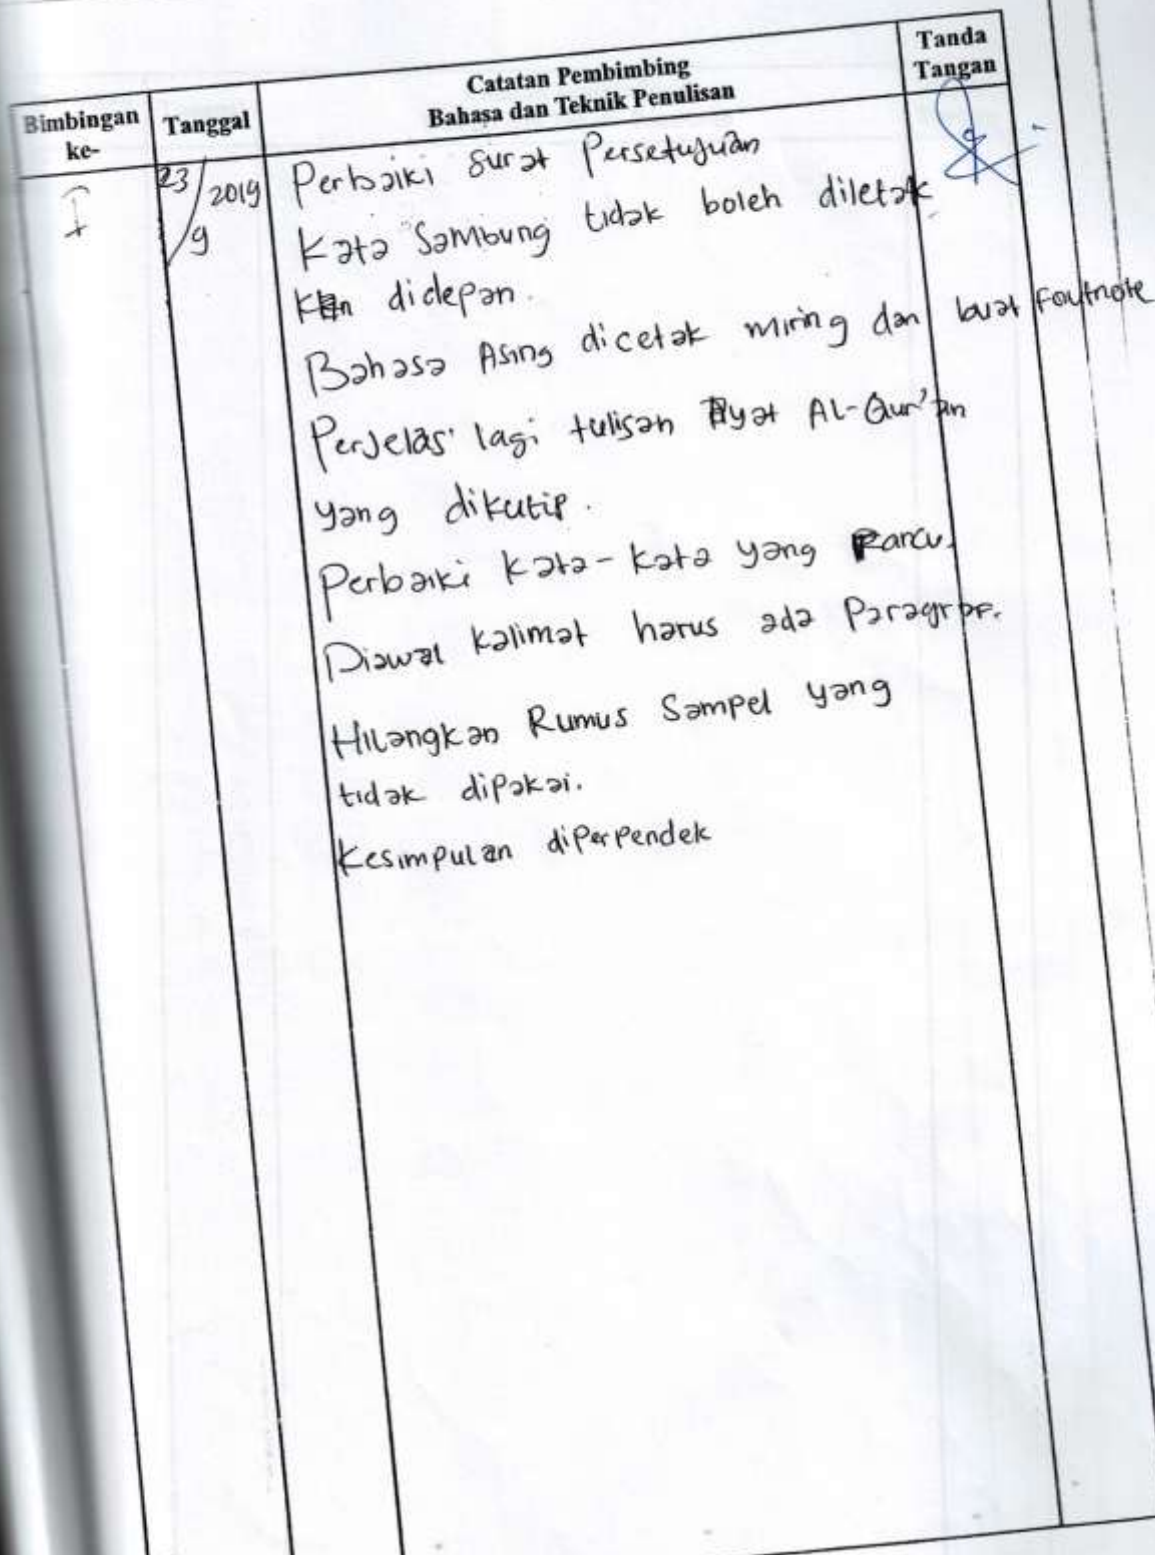 Bimbingan ke-
Tanggal
Catatan Pembimbing
Bahasa dan Teknik Penulisan
Tanda
Tangan
I
23/9 2019
Perbaiki surat Persetujuan
Kata Sambung tidak boleh diletak
kan didepan.
Bahasa Asing dicetak miring dan buat Foutnote
Perjelas lagi tulisan Ayat Al-Qur'an
yang dikutip.
Perbaiki Kata-Kata yang Rancu.
Diawal kalimat harus ada Paragraf.
Hilangkan Rumus Sampel yang
tidak dipakai.
Kesimpulan diperpendek